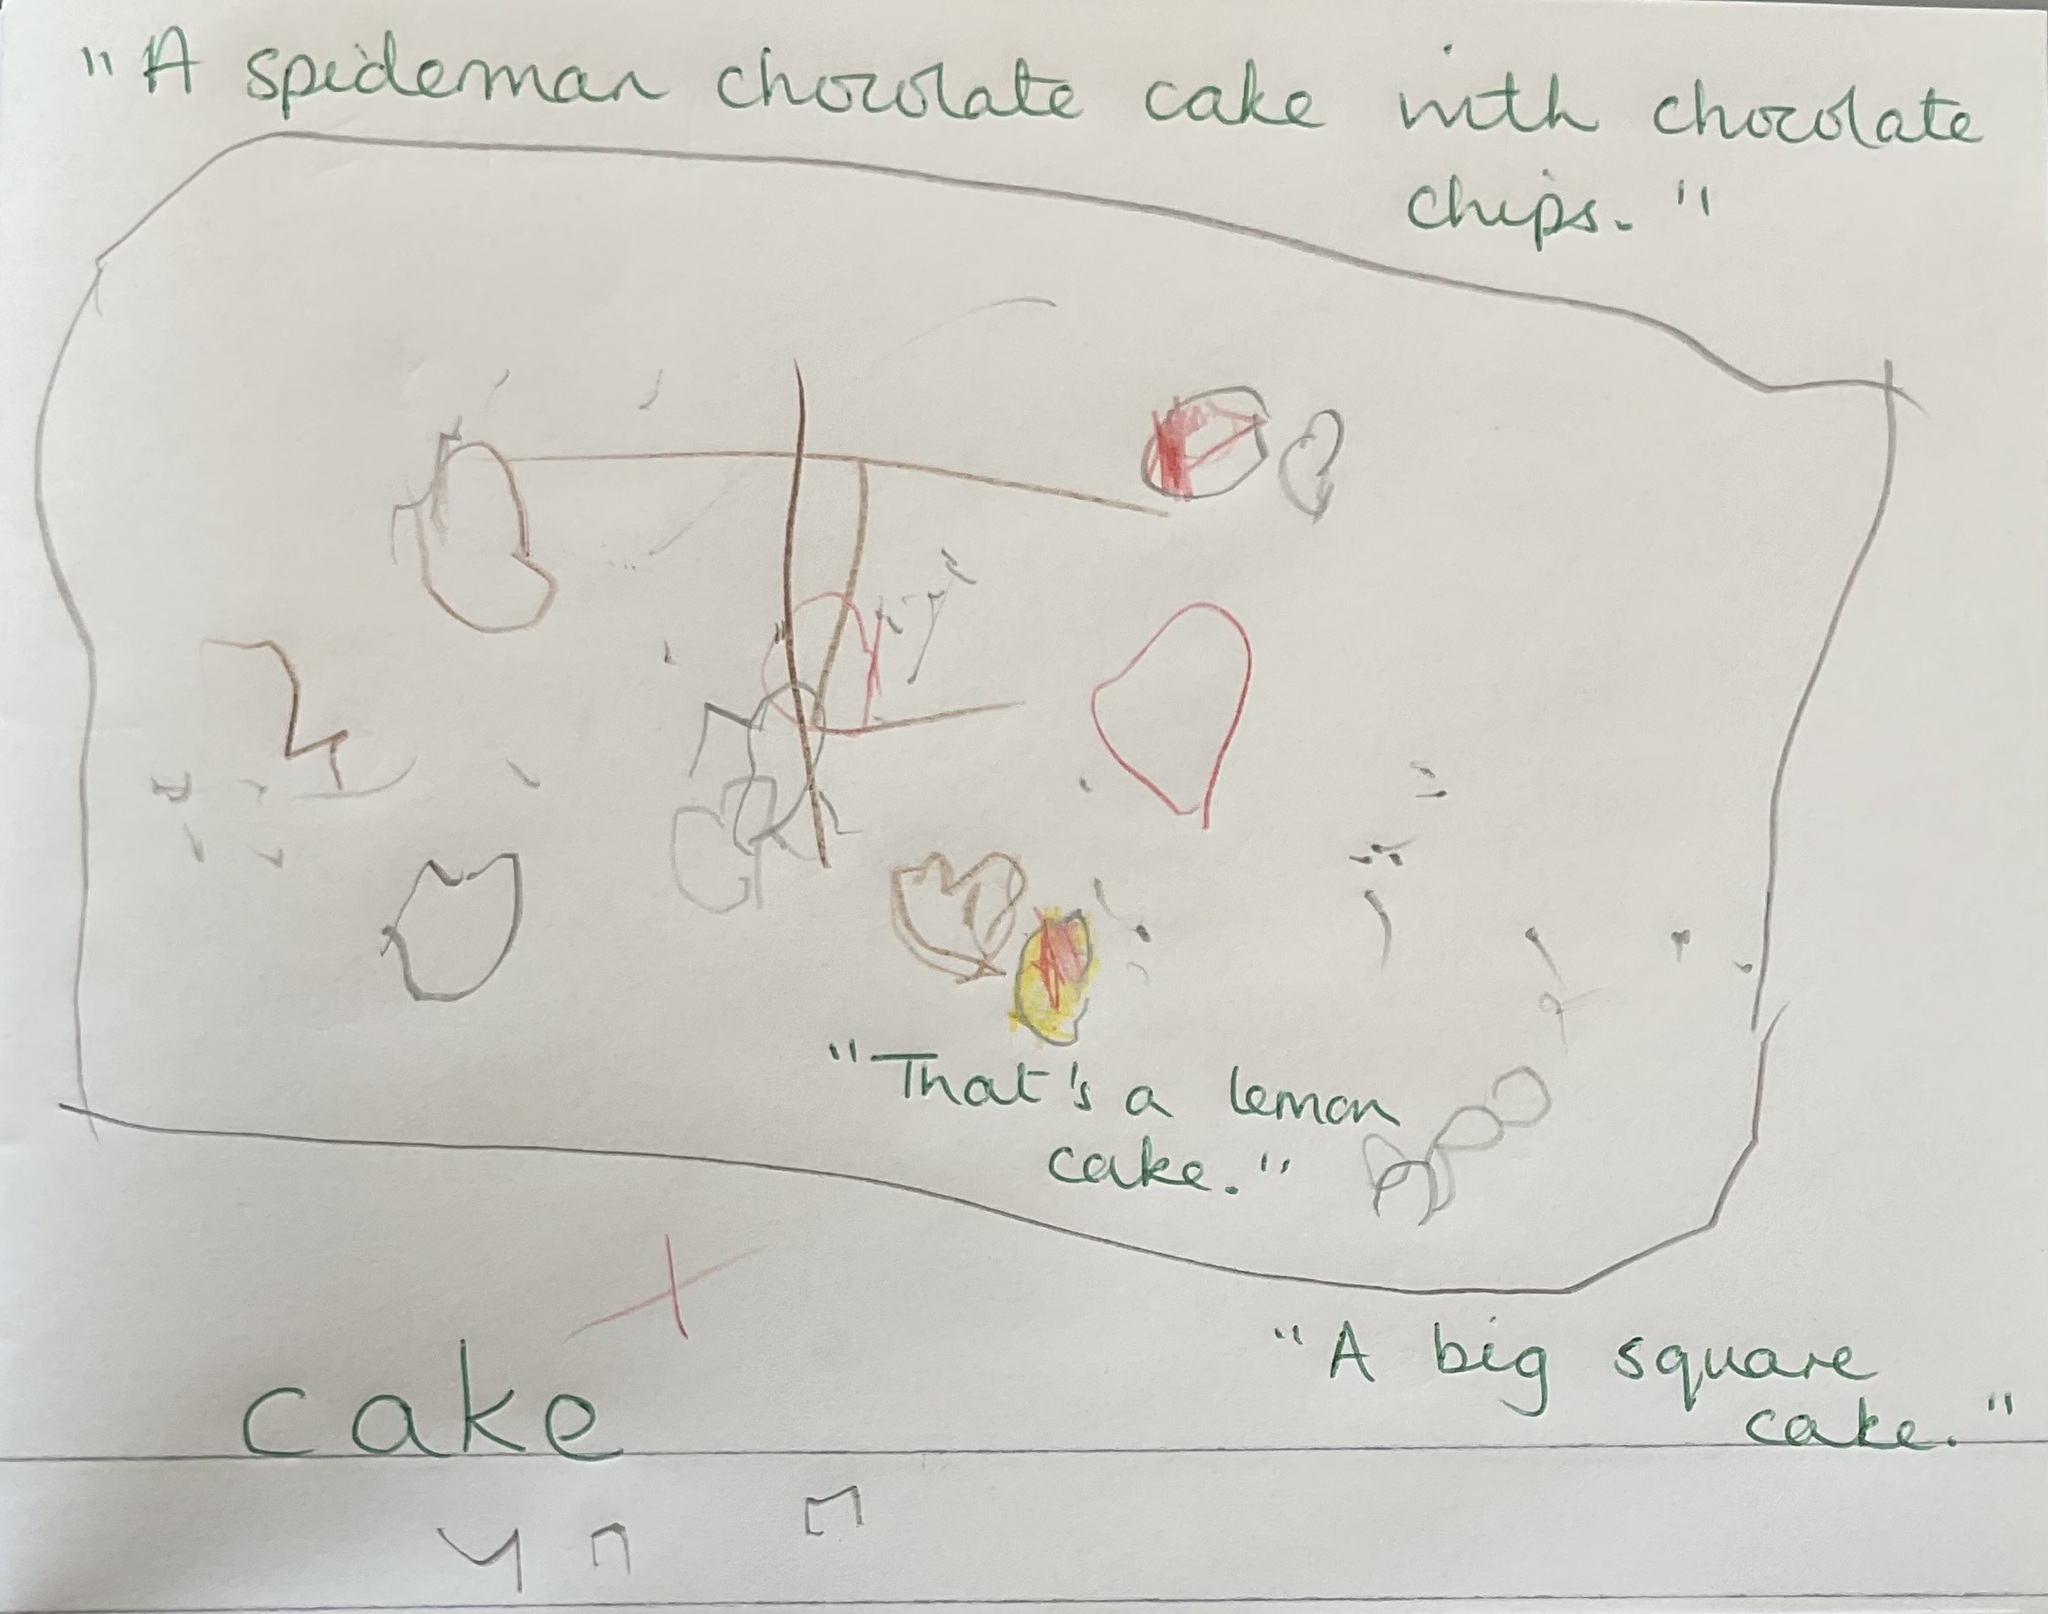 "A spideman chocolate cake with chocolate
chips."
"That's a lemon
cake."
"A big square
cake."
cake